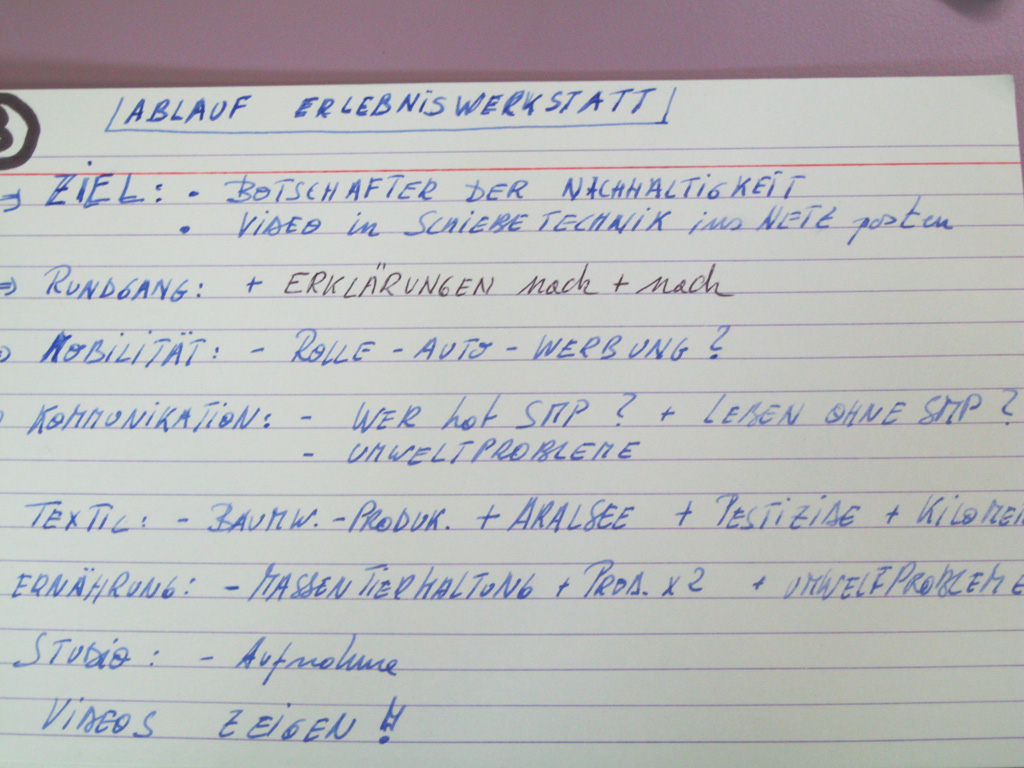 ABLAUF ERLEBNISWERKSTATT
⇒ ZIEL: • BOTSCHAFTER DER NACHHALTIGKEIT
• VIDEO in SCHIEBETECHNIK ins NETZ posten
⇒ RUNDGANG: + ERKLÄRUNGEN nach + nach
MOBILITÄT: - ROLLE - AUTO - WERBUNG?
KOMMUNIKATION: - WER hat SMP? + LEBEN OHNE SMP?
- UMWELTPROBLEME
TEXTIL: - BAUMW. - PRODUK. + ARALSEE + PESTIZIDE +
ERNÄHRUNG: - MASSENTIERHALTUNG + PROD. x 2 + UMWELTPROBLEME
STUDIO: - Aufnahme
VIDEOS ZEIGEN!!